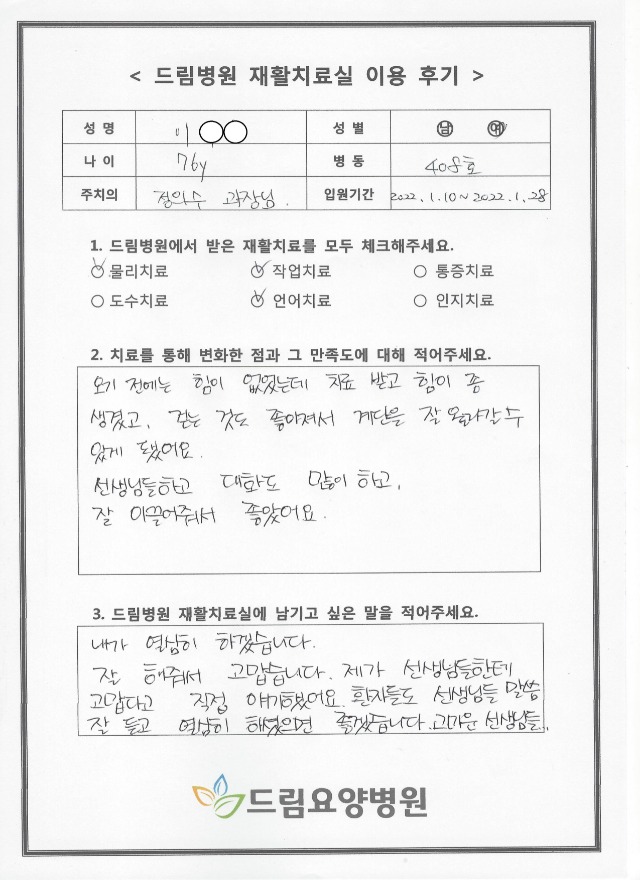 < 드림병원 재활치료실 이용 후기 >
성 명 이○○ 성 별 남 여
나 이 76y 병 동 408호
주치의 정의수 과장님. 입원기간 2022.1.10~2022.1.28
1. 드림병원에서 받은 재활치료를 모두 체크해주세요.
물리치료 작업치료 통증치료
도수치료 언어치료 인지치료
2. 치료를 통해 변화한 점과 그 만족도에 대해 적어주세요.
오기 전에는 힘이 없었는데 치료 받고 힘이 좀
생겼고, 걷는 것도 좋아져서 계단을 잘 올라갈 수
있게 됐어요.
선생님들하고 대화도 많이 하고,
잘 이끌어줘서 좋았어요.
3. 드림병원 재활치료실에 남기고 싶은 말을 적어주세요.
내가 열심히 하겠습니다.
잘 해줘서 고맙습니다. 제가 선생님들한테
고맙다고 직접 얘기했어요. 환자들도 선생님들 말씀
잘 듣고 열심히 해졌으면 좋겠습니다. 고마운 선생님들..
드림요양병원